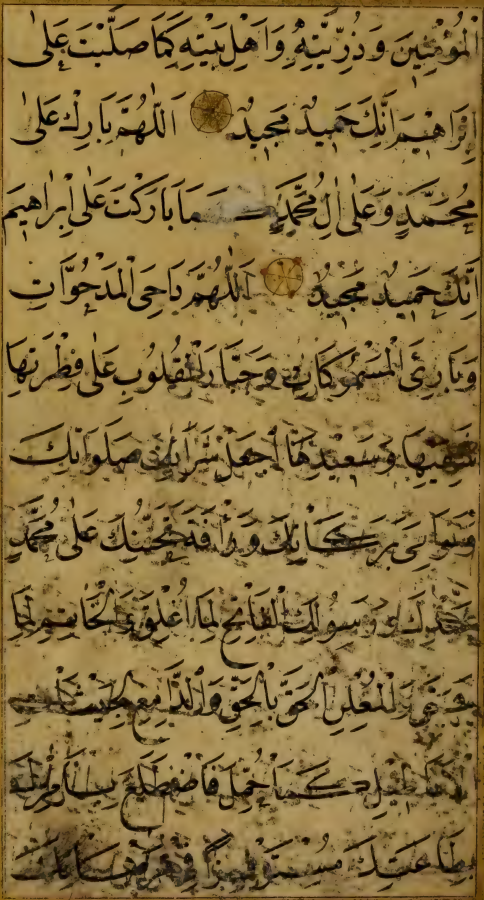 الْمُؤْمِنِينَ وَذُرِّيَّتِهِ وَاَهْلِ بَيْتِهِ كَمَا صَلَّيْتَ عَلٰى
اِبْرَاهِيمَ اِنَّكَ حَمِيدٌ مَجِيدٌ اَللّٰهُمَّ بَارِكْ عَلٰى
مُحَمَّدٍ وَعَلٰى اٰلِ مُحَمَّدٍ كَمَا بَارَكْتَ عَلٰى اِبْرَاهِيمَ
اِنَّكَ حَمِيدٌ مَجِيدٌ اَللّٰهُمَّ دَاحِىَ الْمَدْحُوَّاتِ
وَبَارِئَ الْمَسْمُوكَاتِ وَجَبَّارَ الْقُلُوبِ عَلٰى فِطْرَتِهَا
شَقِيِّهَا وَسَعِيدِهَا اجْعَلْ شَرَائِفَ صَلَوَاتِكَ
وَنَوَامِىَ بَرَكَاتِكَ وَرَأْفَةَ تَحَنُّنِكَ عَلٰى مُحَمَّدٍ
عَبْدِكَ وَرَسُولِكَ الْفَاتِحِ لِمَا اُغْلِقَ وَالْخَاتِمِ لِمَا
سَبَقَ وَالْمُعْلِنِ الْحَقَّ بِالْحَقِّ وَالدَّامِغِ لِجَيْشَاتِ
الْاَبَاطِيلِ كَمَا حُمِّلَ فَاضْطَلَعَ بِاَمْرِكَ
بِطَاعَتِكَ مُسْتَوْفِزًا فِى مَرْضَاتِكَ